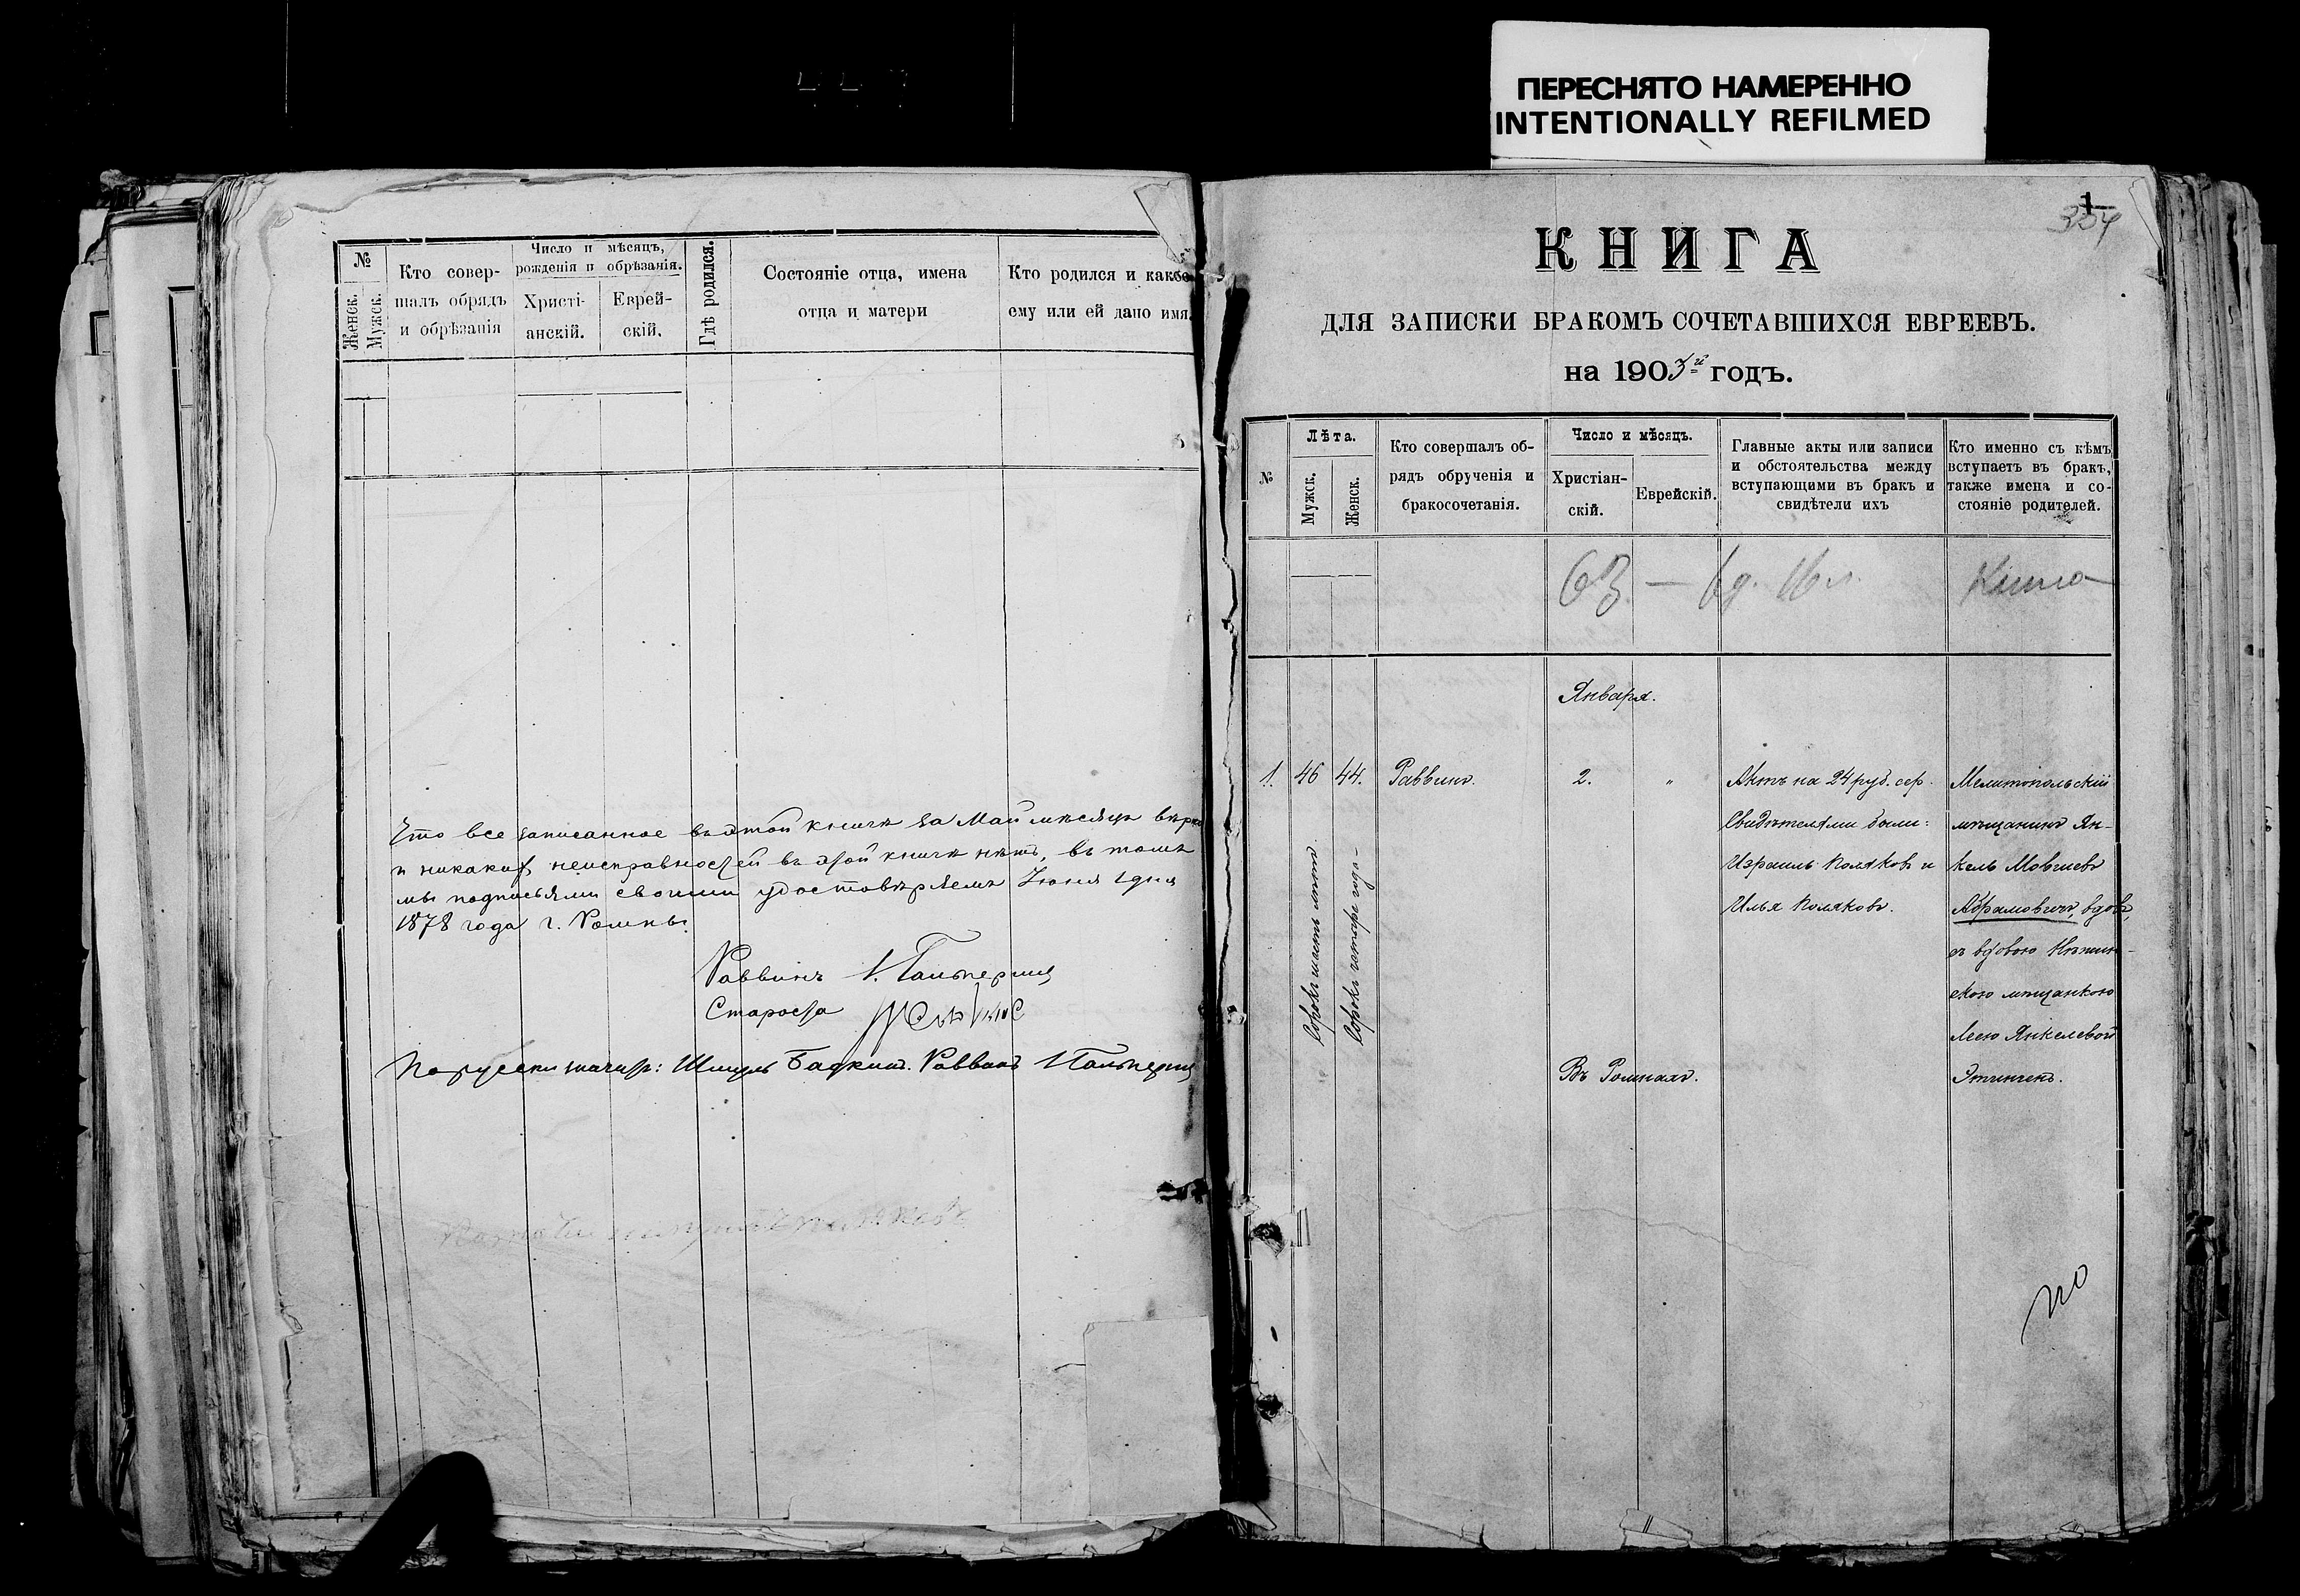 ПЕРЕСНЯТО НАМЕРЕННО
INTENTIONALLY REFILMED
№
Женск.
Мужск.
Кто совер-
шалъ обрядъ
и обрѣзанія
Число и мѣсяцъ,
рожденія и обрѣзанія.
Христі-
анскій.
Еврей-
скій.
Гдѣ родился.
Состояніе отца, имена
отца и матери
Кто родился и какое
ему или ей дано имя.
Что все записанное въ этой книгѣ за Май мѣсяцъ вѣрно
и никакихъ неисправностей въ этой книгѣ нѣтъ, въ томъ
мы подписями своими удостовѣряемъ Іюня 1 дня
1878 года г. Ромны.
Раввинъ І. Гальперинъ
Староста
По русски значитъ: Шмуль Раввинъ І Гальперинъ
КНИГА
ДЛЯ ЗАПИСКИ БРАКОМЪ СОЧЕТАВШИХСЯ ЕВРЕЕВЪ.
на 1903й годъ.
№
Лѣта.
Мужск.
Женск.
Кто совершалъ об-
рядъ обрученія и
бракосочетанія.
Число и мѣсяцъ.
Христіан-
скій.
Еврейскій.
Главные акты или записи
и обстоятельства между
вступающими въ бракъ и
свидѣтели ихъ
Кто именно съ кѣмъ
вступаетъ въ бракъ,
также имена и со-
стояніе родителей.
63 —
Января.
1. 46 44. Раввинъ. 2. "
Сорокъ шесть лѣтъ
Сорокъ четыре года –
Въ Ромнахъ.
Актъ на 24 руб. сер.
Свидѣтелями были:
Израиль Поляковъ и
Илья Поляковъ.
Мелитопольскій
мѣщанинъ Ян-
кель Мовшевъ
Абрамовичъ, вдов,
съ вдовою Нѣжин-
скою мѣщанкою
Леею Янкелевой
Этингенъ.
по